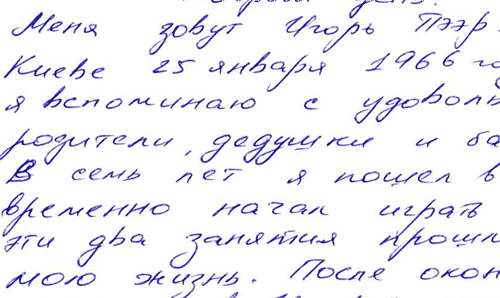 день.
Меня зовут Игорь Пээр.
Киеве 25 января 1966 го
я вспоминаю с удоволь
родители, дедушки и ба
В семь лет я пошел в
временно начал играть
эти два занятия прошл
мою жизнь. После окон